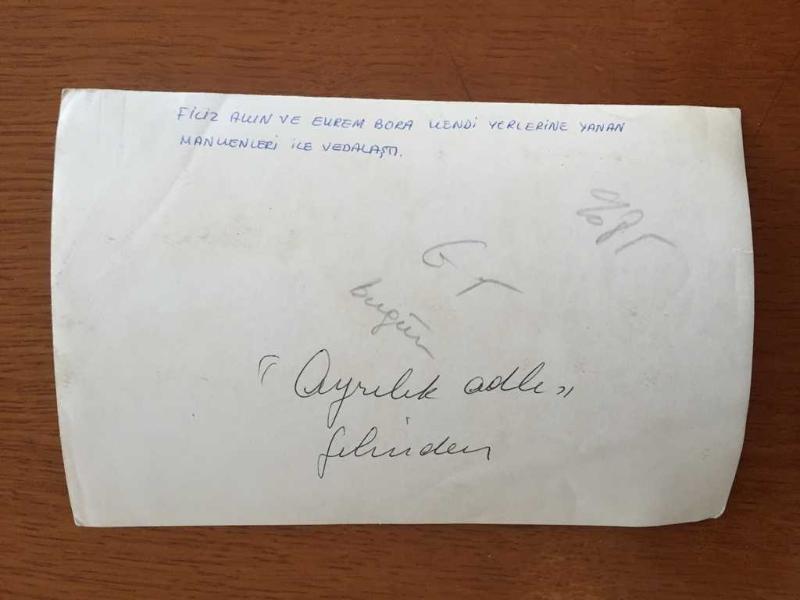 FİLİZ AKIN VE EKREM BORA KENDİ YERLERİNE YANAN
MANKENLERİ İLE VEDALAŞTI.
%85
GT
bugün
"Ayrılık adlı"
filminden